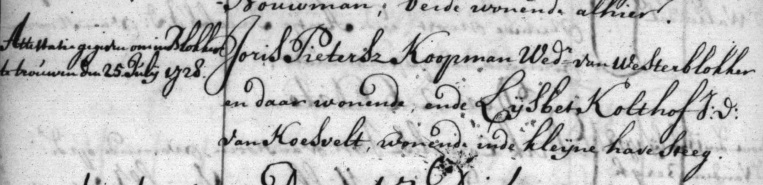 Bouwman, beide wonende alhier.
Attestatie gegeven om in Blokker
te trouwen den 25 July 1728.
Joris Pietersz Koopman Wedr van Westerblokker
en daar wonende, ende Lijsbet Kolthof J: d:
van Koesvelt, wonende inde kleijne have Steeg.